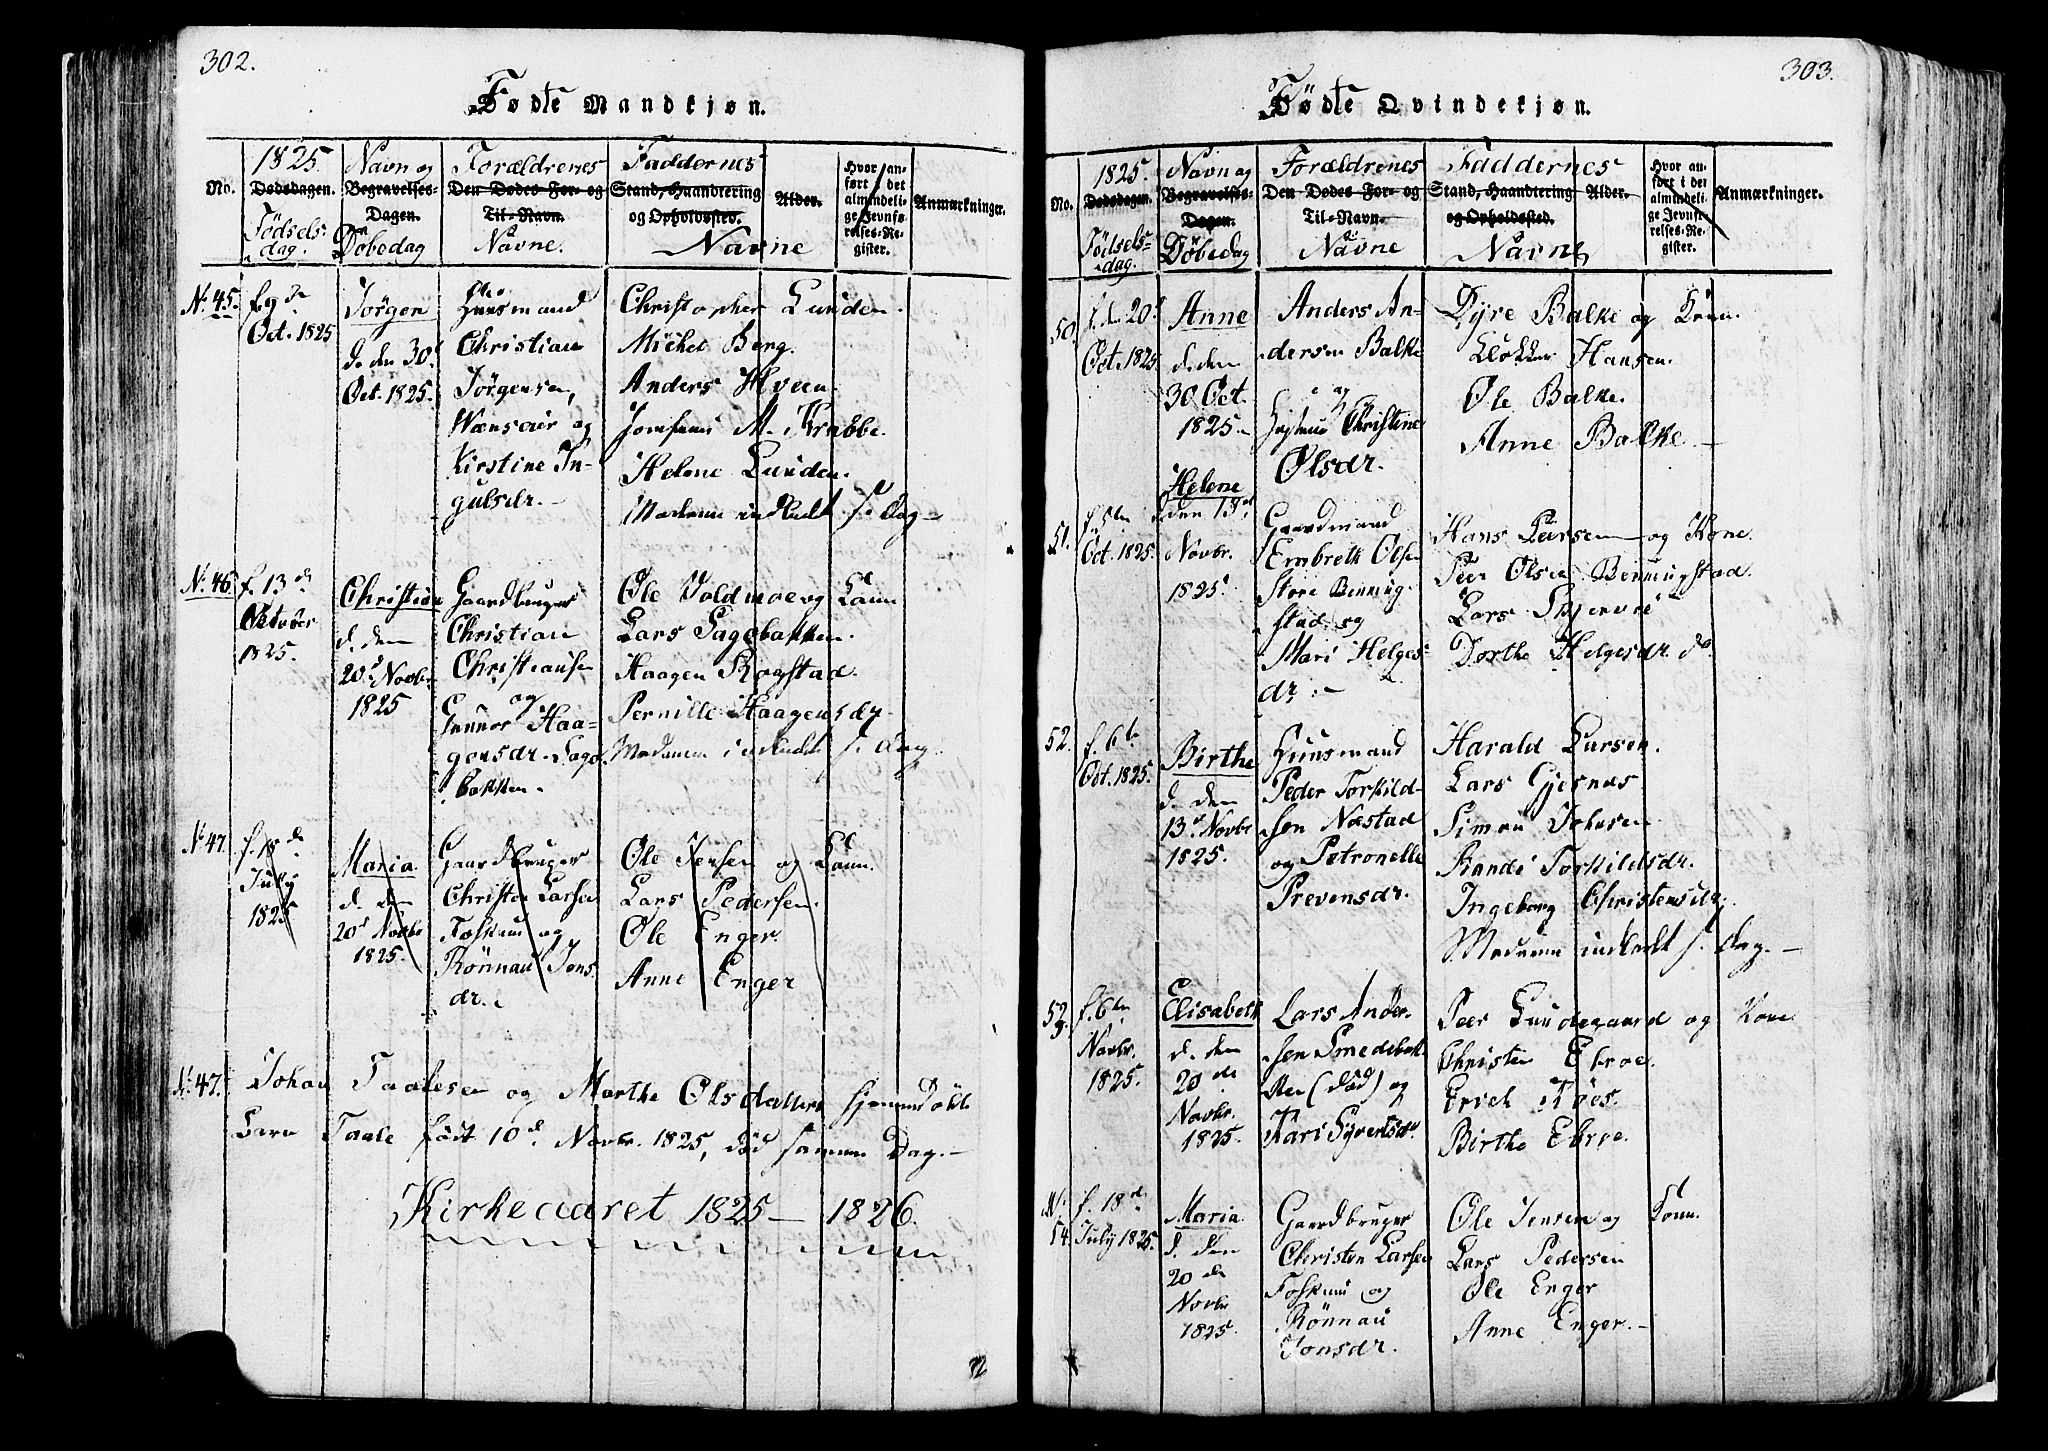 302.
Fødte Mandkjøn.
No.
1825.
Dødsdagen.
Fødsels-
dag.
Navn og
Begravelses-
Dagen.
Døbedag
Forældrenes
Den Dødes For- og
Til-Navn.
Navne.
Faddernes
Stand, Haandtering
og Opholdssted.
Navne
Alder.
Hvor an-
ført i det
almindeli-
ge Jevnfø-
relses-Re-
gister.
Anmærkninger.
No. 45.
Oct. 1825
Jørgen
d. den 30d
Oct. 1825.
Huusmand
Christian
Jørgensen,
og
Kirstine In-
gulsdr.
Christopher Lunden.
Michel Berg.
Anders Hveen.
M. Krabbe.
Helene Lunden.
s. Dag
No. 46.
f. 13de
October
1825.
Christian
d. den
20d Novbr
1825
Gaardbruger
Christian
Christiansen
og
Gunnor Haa-
gensdr. Sags-
bakken.
Ole Voldmoe og Kone
Lars Sagsbakken.
Haagen Rogstad.
Pernille Haagensdr.
s. Dag.
No. 47
f. 18de
July
1825
Maria
d. den
20d Novbr
1825.
Gaardbruger
Christen Larsen
Foskum og
Rönnau Jons
dr.
Ole Jensen og Kone.
Lars Pedersen.
Ole Enger.
Anne Enger
No. 47.
Johan Taalesen og Marthe Olsdatters hjemmedöbte
Barn Taale født 10d. Novbr. 1825, död samme Dag.
Kirkeaaret 1825 — 1826.
303.
Fødte Qvindekjøn.
No.
1825.
Dødsdagen.
Fødsels-
dag.
Navn og
Begravelses-
Dagen.
Døbedag
Forældrenes
Den Dødes For- og
Til-Navn.
Navne
Faddernes
Stand, Haandtering
og Opholdssted.
Navne
Alder.
Hvor an-
ført i det
almindeli-
ge Jevnfø-
relses-Re-
gister.
Anmærkninger.
50.
f. d. 20d
Oct. 1825
Anne
d. den
30 Oct.
1825.
Anders An-
dersen Balke
og
Christine
Olsdr.
Dyre Balke og Kone.
Klokker Hansen.
Ole Balke.
Anne Balke.
51.
f. 5te
Oct. 1825.
Helene
den 13d
Novbr.
1825.
Gaardmand
Embreth Olsen
Store Benning-
stad og
Mari Helges-
dr.
Hans Larsen og Kone.
Peer Olsen Benningstad.
Lars
Dorthe Helgesdr. do.
52.
f. 6te
Oct. 1825.
Birthe
d. den
13d Novbr
1825.
Huusmand
Peder Torkild-
sen Næstad
og Petronelle
Prevensdr.
Harald Larsen.
Lars Gjernæs
Simen Johnsen.
Randi Torkildsdr.
Ingeborg Christensdr.
s. Dag.
53.
f. 6te
Novbr.
1825.
Elisabeth
d. den
20de
Novbr.
1825.
Lars Ander-
sen Smedsbak-
ken (död) og
Kari Syvertsdr.
Peer Lundegaard og Kone
Christen Ebroe.
Erich Röes.
Birthe Ebroe.
No.
54.
f. 18de
July 1825.
Maria
d. den
20de
Novbr
1825.
Gaardbruger
Christen Larsen
Foskum og
Rönnau
Jonsdr.
Ole Jensen og Kone.
Lars Pedersen
Ole Enger
Anne Enger.